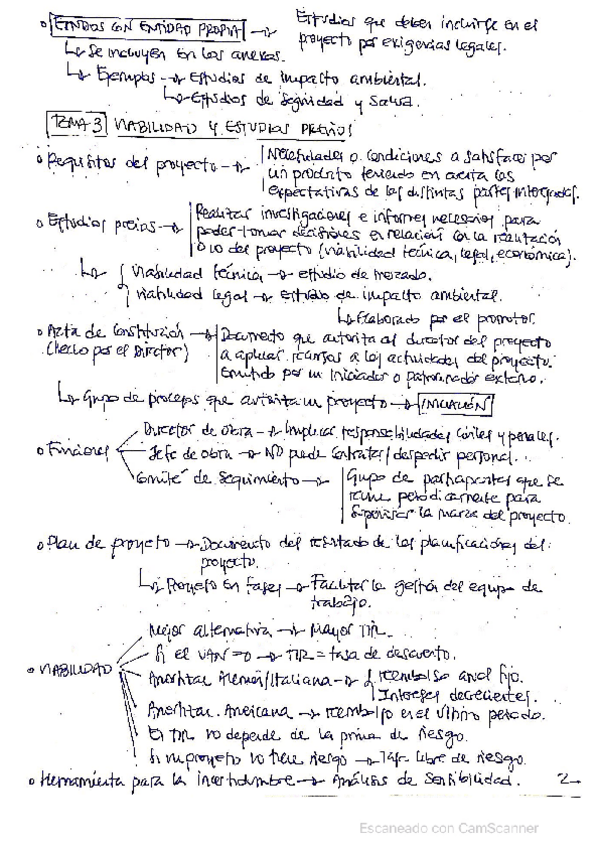 o ESTUDIOS CON ENTIDAD PROPIA → Estudios que deben incluirse en el
proyecto por exigencias legales.
↳ Se incluyen en los anexos.
↳ Ejemplos → Estudios de impacto ambiental.
↳ Estudios de seguridad y salud.
TEMA 3 VIABILIDAD Y ESTUDIOS PREVIOS
o Requisitos del proyecto → Necesidades o condiciones a satisfacer por
un producto teniendo en cuenta las
expectativas de las distintas partes interesadas.
o Estudios previos → Realizar investigaciones e informes necesarios para
poder tomar decisiones en relación con la realización
o no del proyecto (viabilidad técnica, legal, económica).
↳ Viabilidad técnica → estudio de mercado.
Viabilidad legal → estudio de impacto ambiental.
↳ Elaborado por el promotor.
o Acta de Constitución → Documento que autoriza al director del proyecto
(hecho por el Director) a aplicar recursos a las actividades del proyecto.
Emitido por un iniciador o patrocinador externo.
↳ Grupo de procesos que autoriza un proyecto → INICIACIÓN
Director de obra → Implicar responsabilidades civiles y penales.
o Funciones Jefe de obra → NO puede contratar/despedir personal.
Comité de seguimiento → Grupo de participantes que se
reúne periódicamente para
supervisar la marcha del proyecto.
o Plan de proyecto → Documento del resultado de las planificaciones del
proyecto.
↳ Proyecto en fases → Facilitar la gestión del equipo de
trabajo.
Mejor alternativa → Mayor TIR.
Si el VAN=0 → TIR = tasa de descuento.
o VIABILIDAD Amortizac Alemán/Italiana → reembolso anual fijo.
Intereses decrecientes.
Amortizac. Americana → reembolso en el último periodo.
El TIR no depende de la prima de riesgo.
Si un proyecto no tiene riesgo → Tasa libre de riesgo.
o Herramienta para la incertidumbre → Análisis de sensibilidad. 2
Escaneado con CamScanner